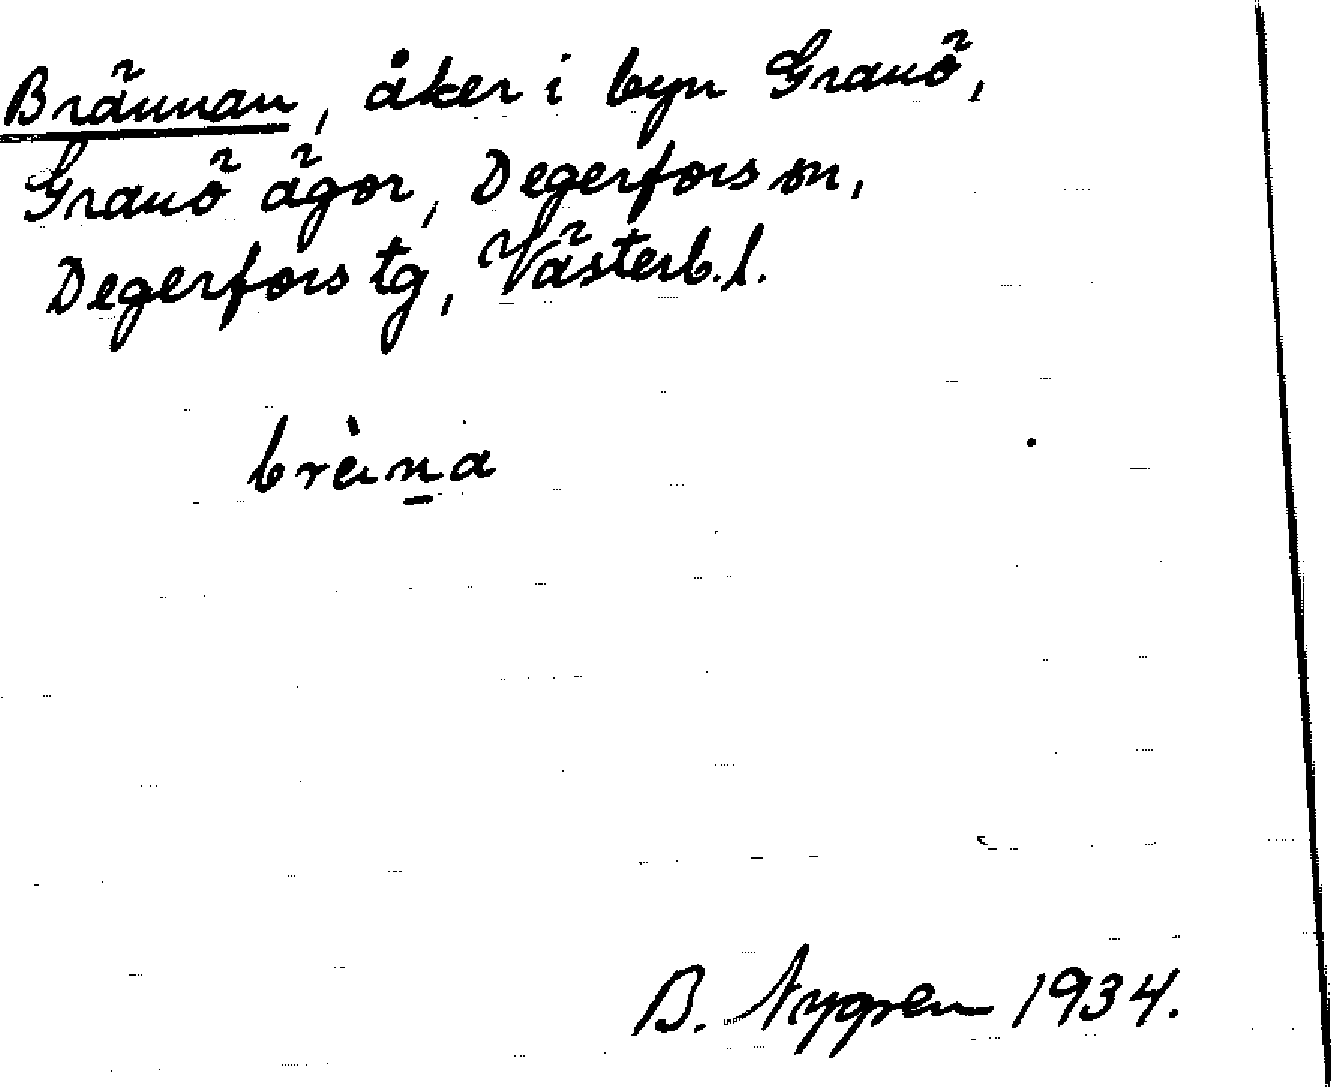 Brännan, åker i byn Granö,
Granö ägor, Degerfors sn,
Degerfors tg, Västerb. l.
brèn̲a
B. Nygren 1934.